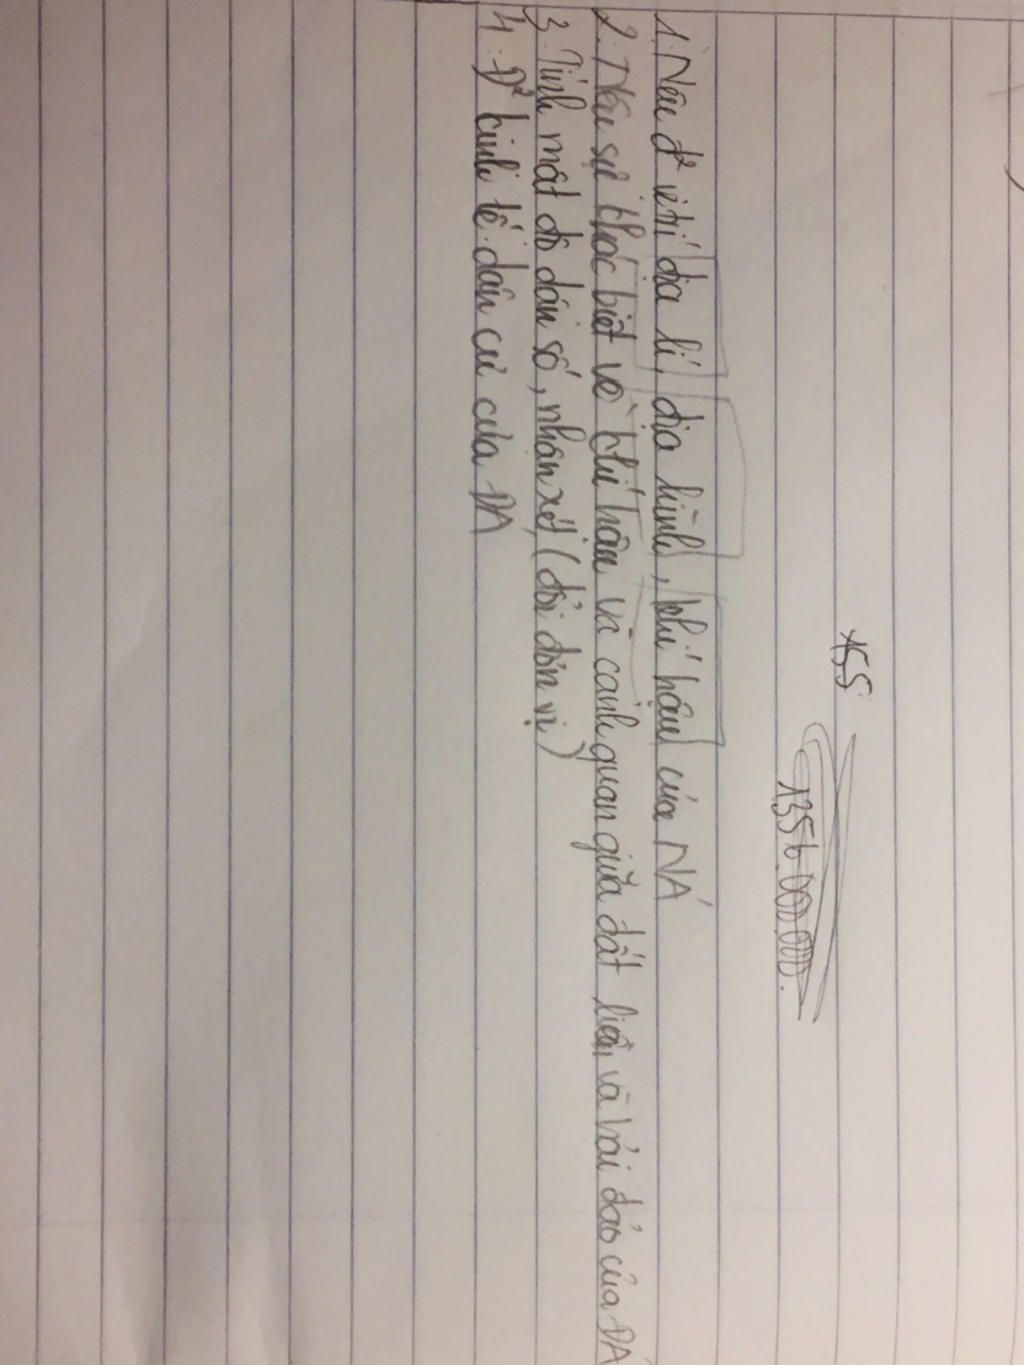 155
1356.000.000.
1. Nêu đ² vị trí địa lí, địa hình, khí hậu của NÁ
2. Nêu sự khác biệt về khí hậu và cảnh quan giữa đất liền và hải đảo của ĐÁ
3. Tính mật độ dân số, nhận xét, (đổi đơn vị)
4. Đ² kinh tế dân cư của ĐA